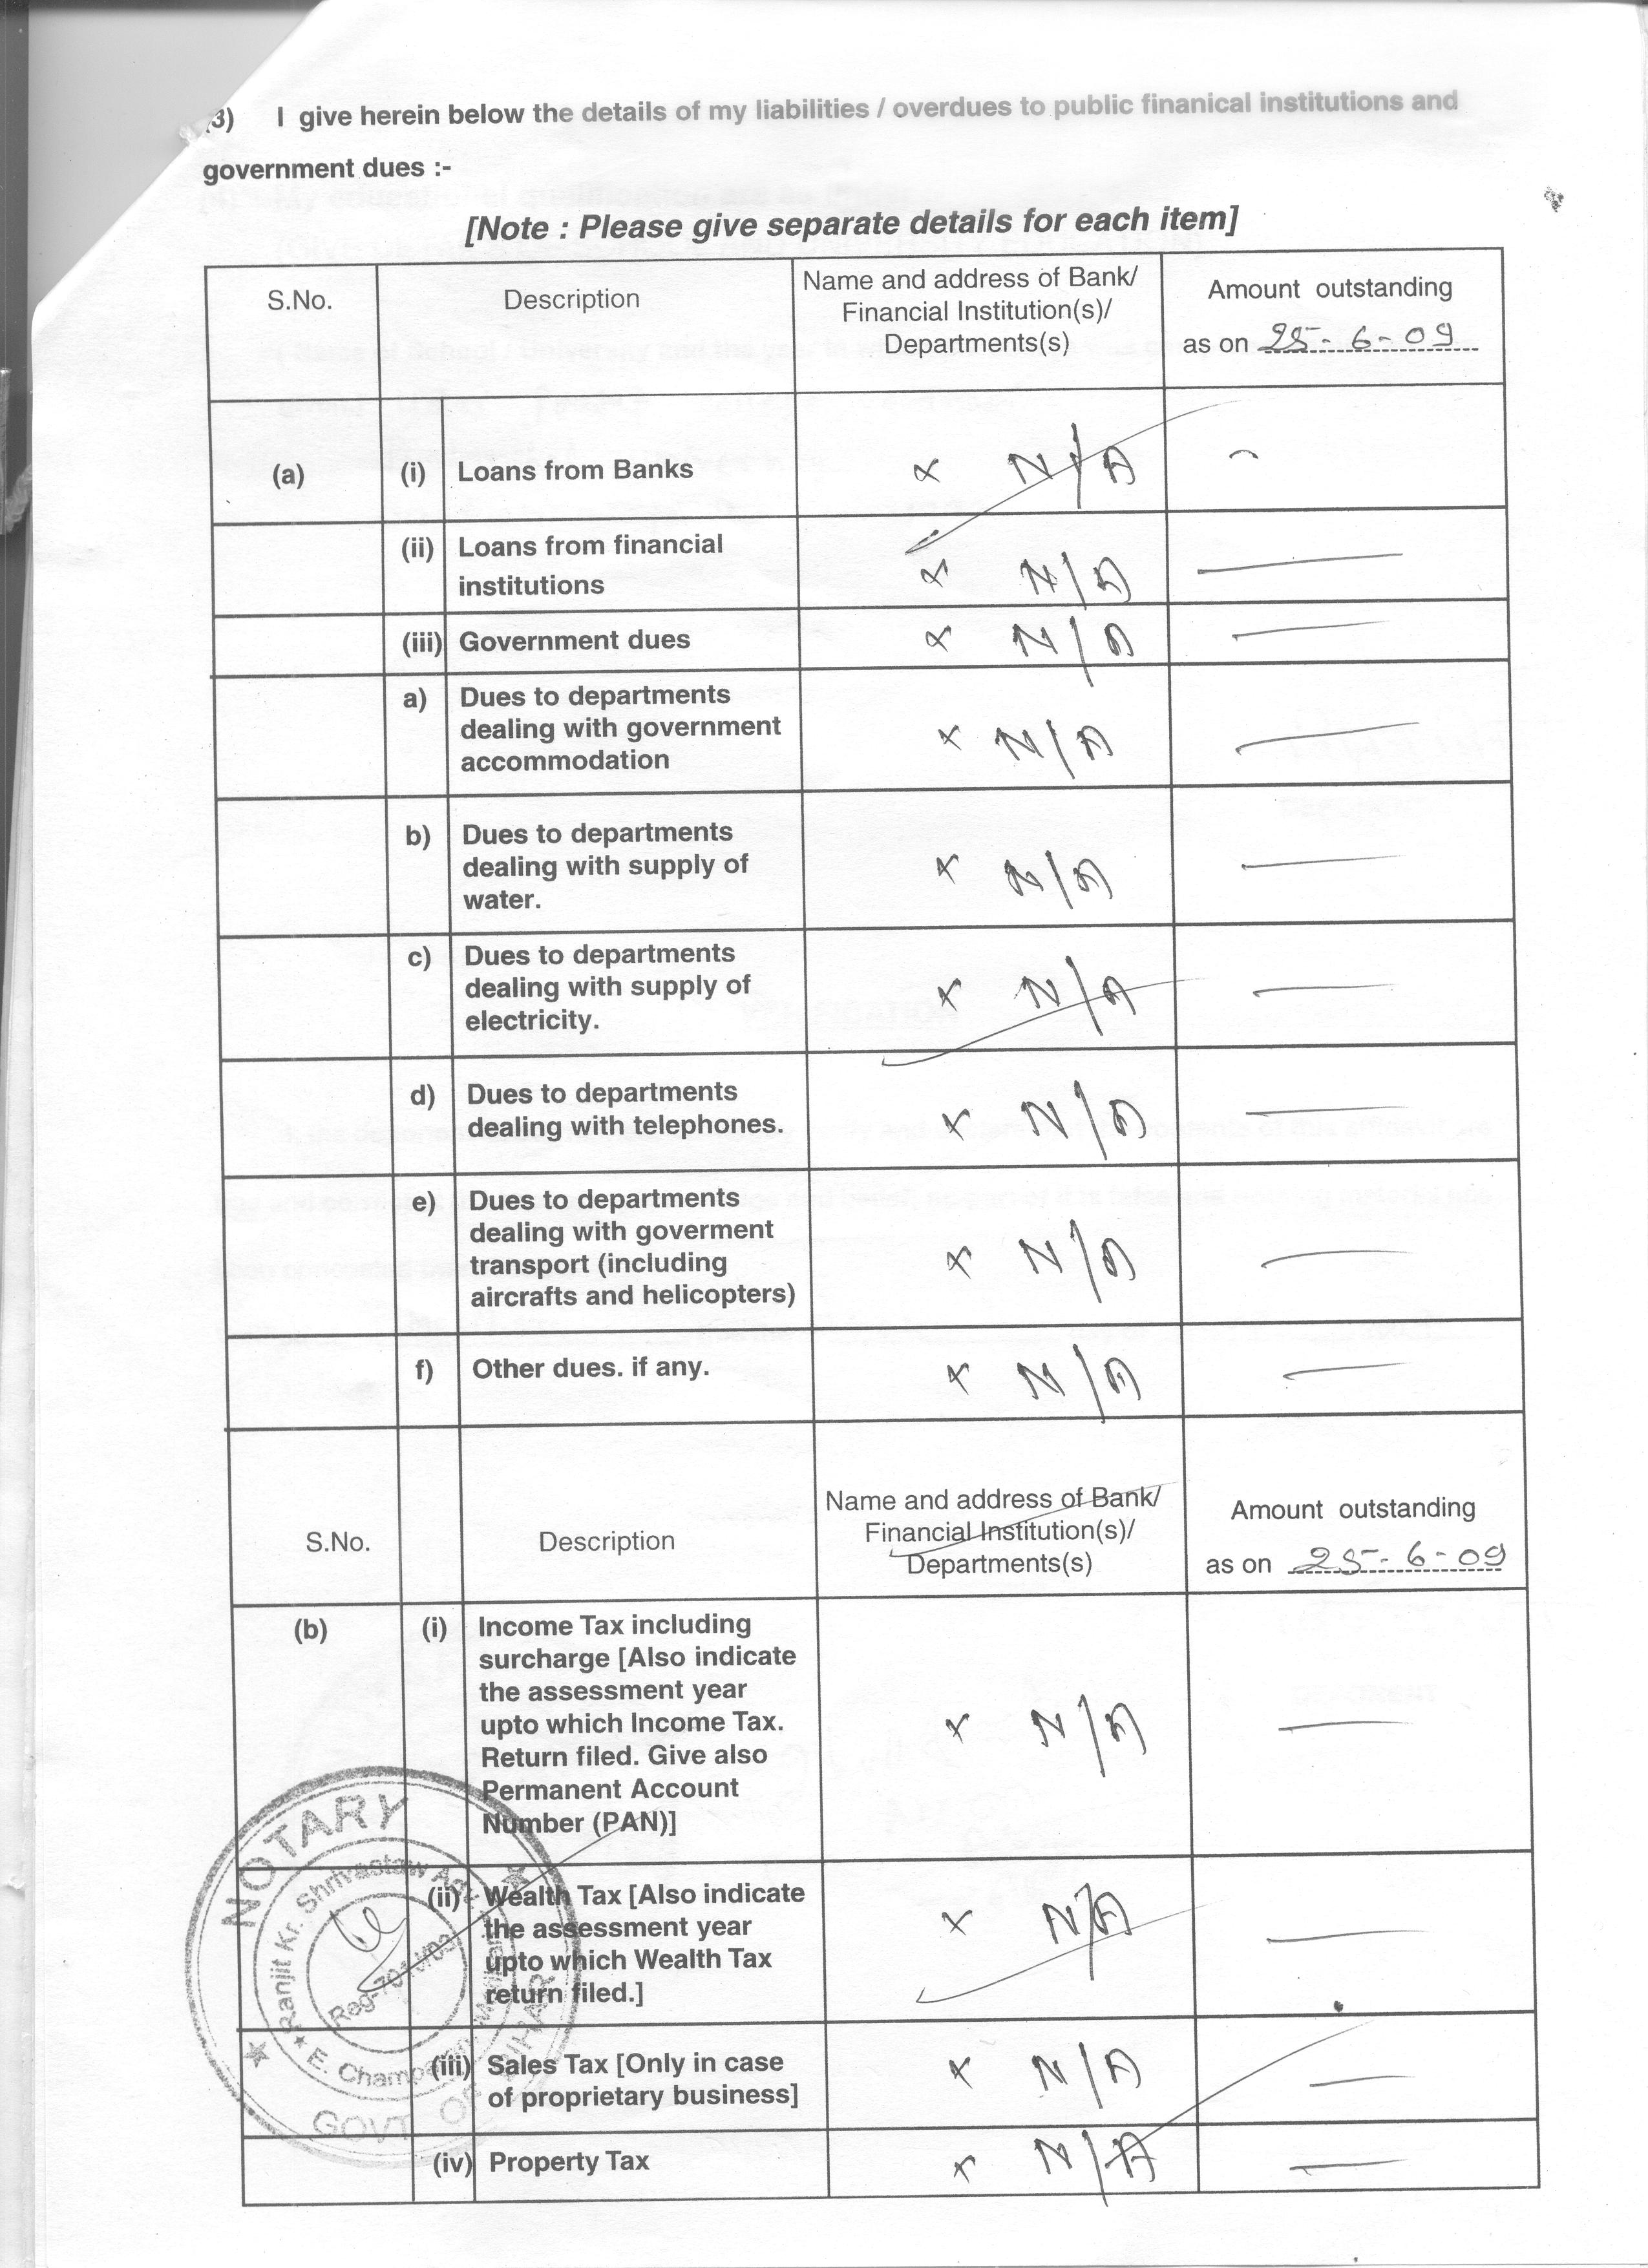 (3) I give herein below the details of my liabilities / overdues to public finanical institutions and
government dues :-
[Note : Please give separate details for each item]
S.No.
Description
Name and address of Bank/
Financial Institution(s)/
Departments(s)
Amount outstanding
as on 25-6-09
(a) (i) Loans from Banks x N/A
(ii) Loans from financial
institutions x N/A
(iii) Government dues x N/A
a) Dues to departments
dealing with government
accommodation x N/A
b) Dues to departments
dealing with supply of
water. x N/A
c) Dues to departments
dealing with supply of
electricity. x N/A
d) Dues to departments
dealing with telephones. x N/A
e) Dues to departments
dealing with goverment
transport (including
aircrafts and helicopters) x N/A
f) Other dues. if any. x N/A
S.No.
Description
Name and address of Bank/
Financial Institution(s)/
Departments(s)
Amount outstanding
as on 25-6-09
(b) (i) Income Tax including
surcharge [Also indicate
the assessment year
upto which Income Tax.
Return filed. Give also
Permanent Account
Number (PAN)] x N/A
(ii) Wealth Tax [Also indicate
the assessment year
upto which Wealth Tax
return filed.] x N/A
(iii) Sales Tax [Only in case
of proprietary business] x N/A
(iv) Property Tax x N/A
NOTARY
Ranjit Kr. Shrivastaw
E. Champaran
GOVT. OF BIHAR